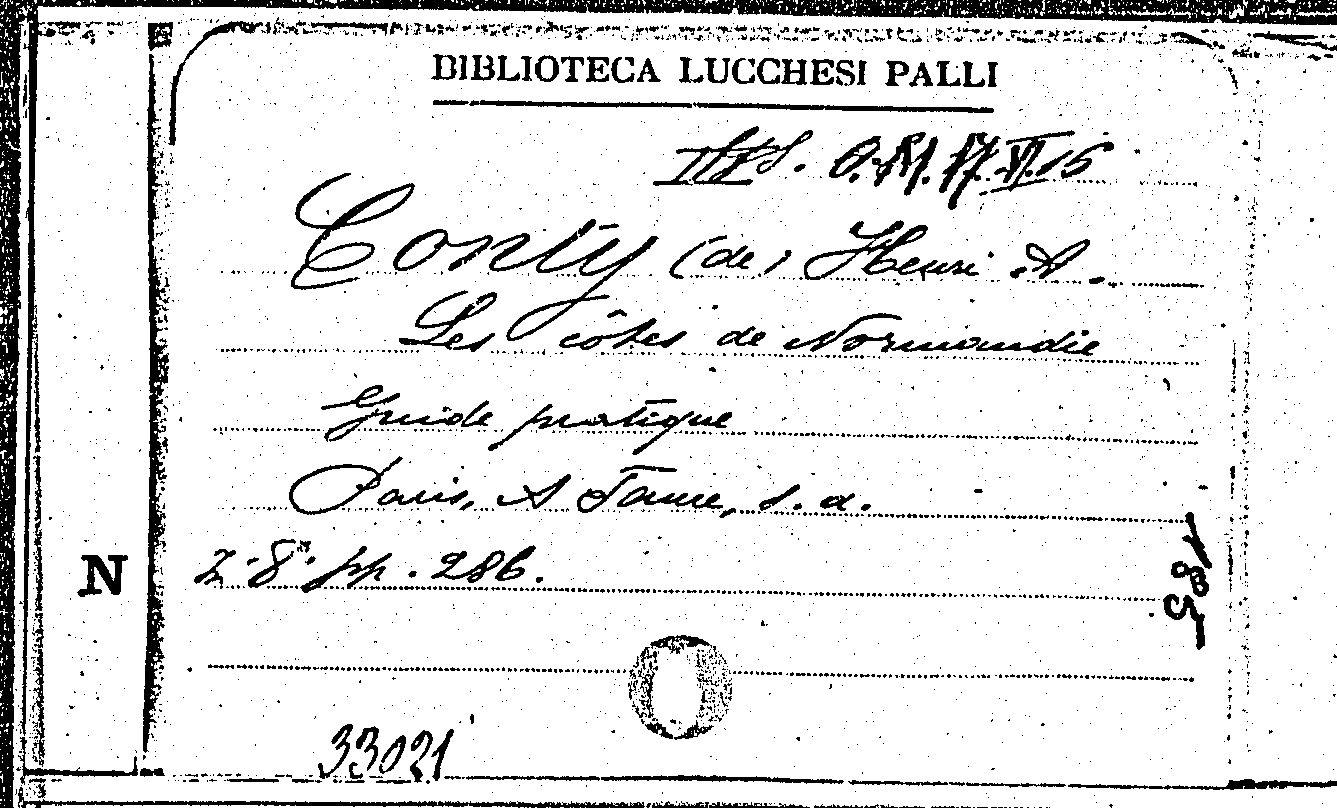 BIBLIOTECA LUCCHESI PALLI
VI.15
Conty (de) Henri A.
Les côtes de Normandie
Guide pratique
Paris, A Faure, s. d.
in 8° pp. 286.
N
33021